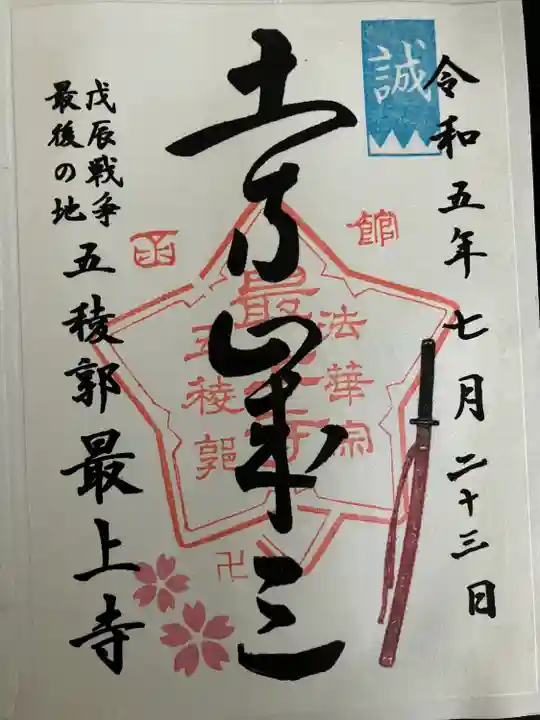 誠
令和五年七月二十三日
土方歳三
函館
法華宗
最上寺
五稜郭
卍
戊辰戦争
最後の地
五稜郭最上寺